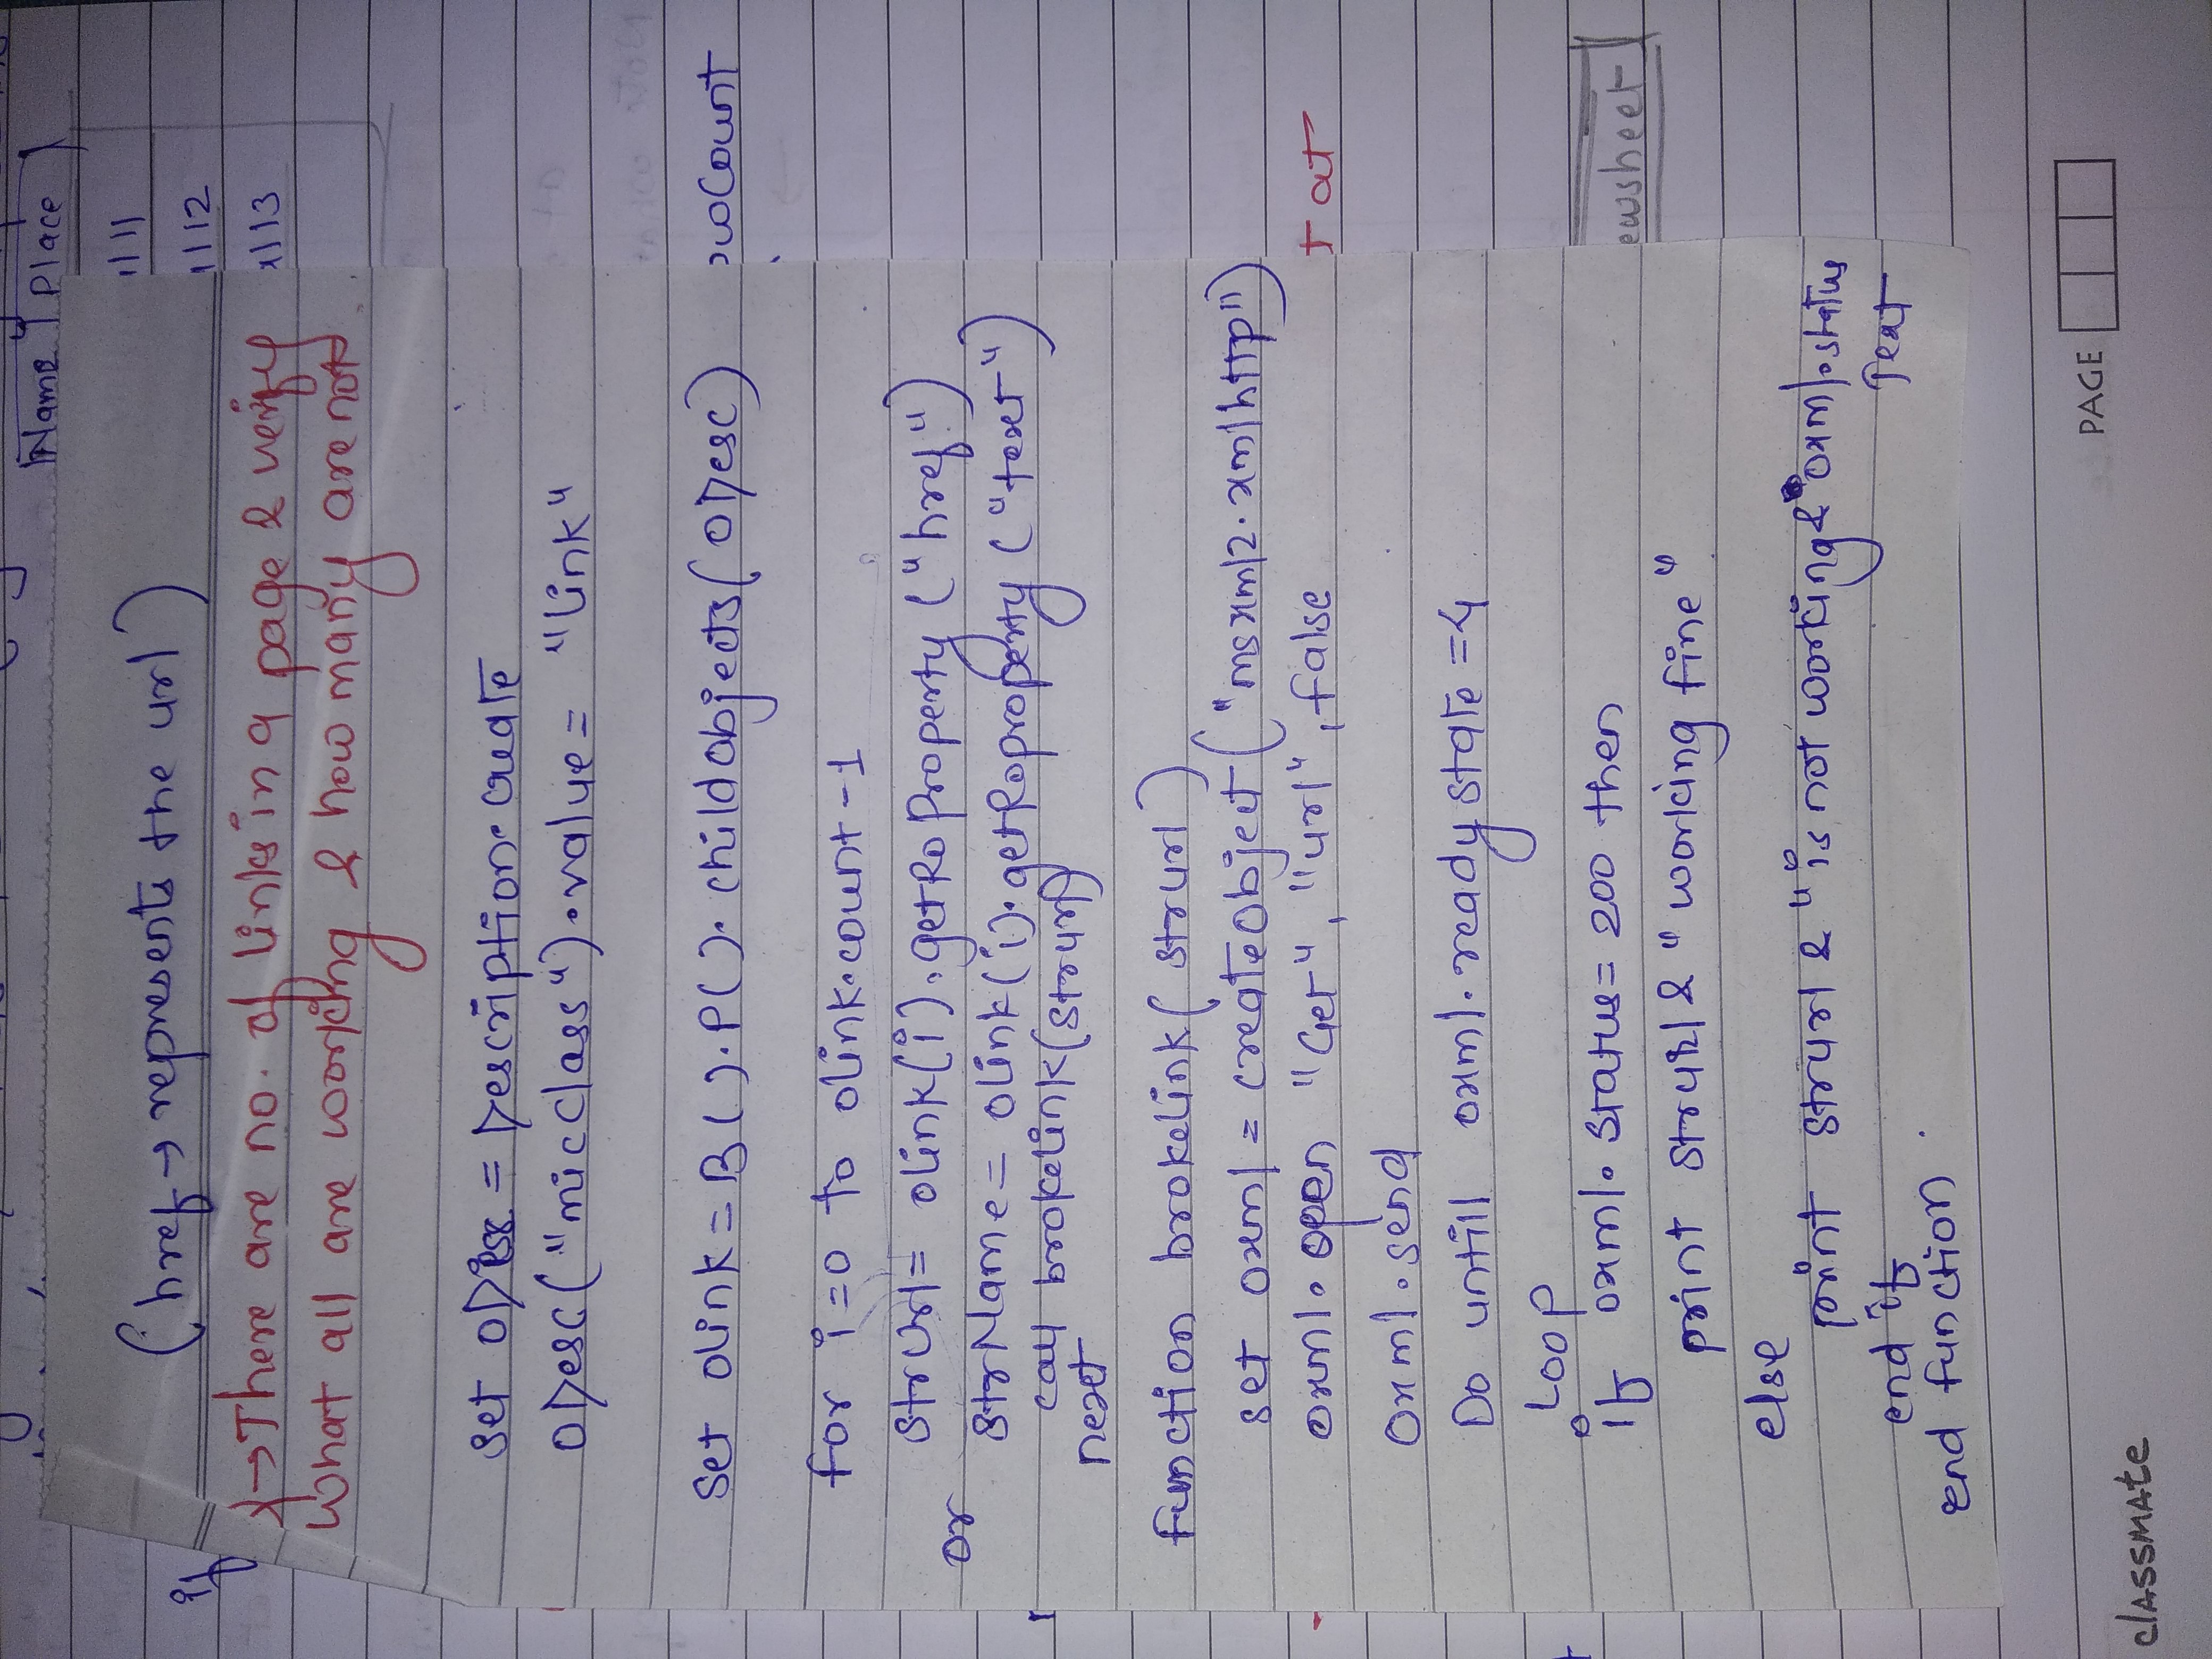 Name Place
1111
1112
1113
(href → represents the url)
→ There are no. of links in a page & verify
what all are working & how many are not
set oDesc = Description.create
oDesc("micclass").value = "link"
set olink = B().P().childobjects(oDesc)
rowCount
for i=0 to olink.count-1
strurl= olink(i).getRoproperty("href")
or strName= olink(i).getRoproperty("text")
call brokelink(strurl)
next
function brokelink(strurl)
set oxml = createObject("msxml2.xmlhttp")
oxml.open "Get", "url", false
oxml.send
Do untill oxml.readystate=4
Loop
if oxml.status=200 then
print strurl & "working fine"
else
print strurl & "is not working & oxml.status
Text
end if
end function.
if
at
ewsheet
classmate
PAGE